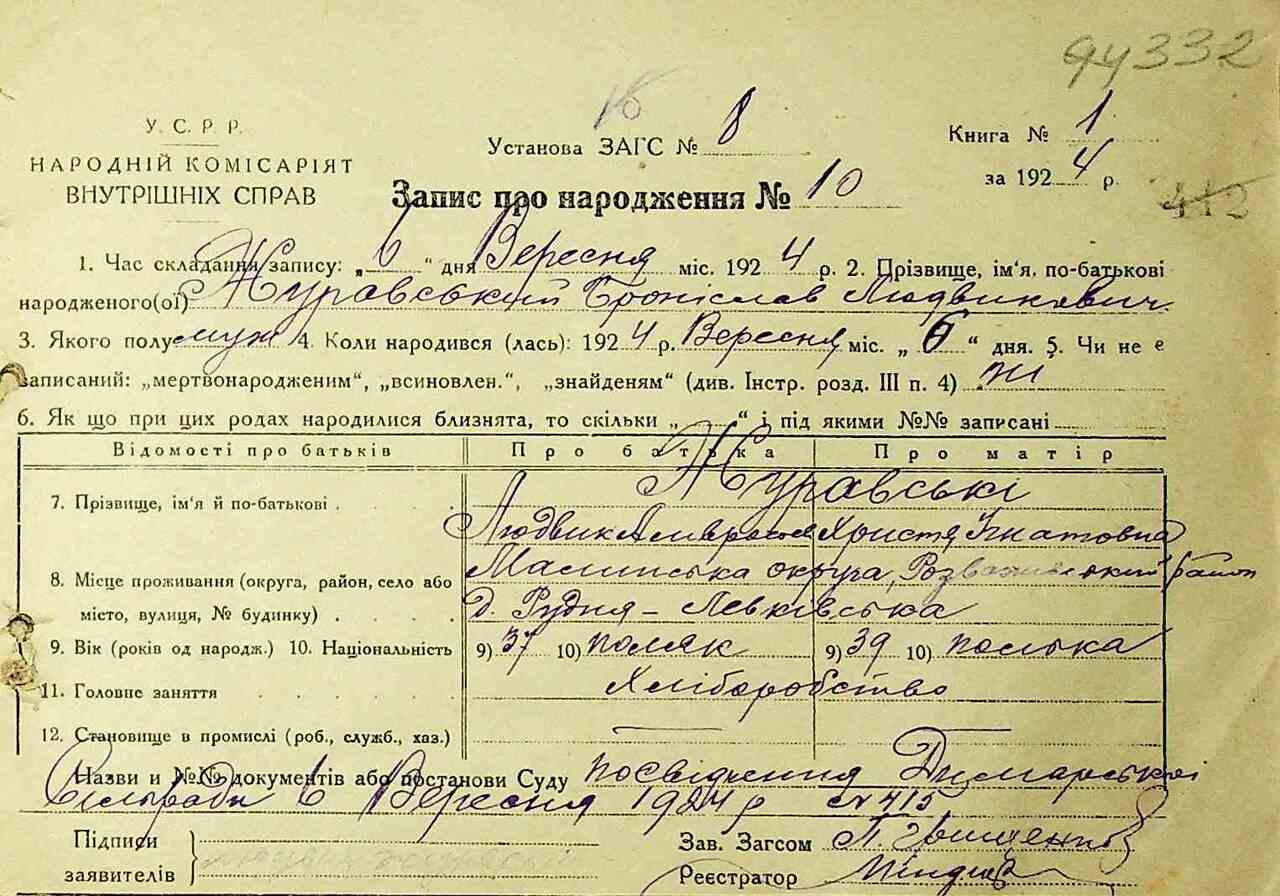 94332
У. С. Р. Р.
НАРОДНІЙ КОМІСАРІЯТ
ВНУТРІШНІХ СПРАВ
Установа ЗАГС № 8
Книга № 1
за 1924 р.
412
Запис про народження № 10
1. Час складання запису: „6“ дня Вересня міс. 1924 р. 2. Прізвище, ім'я, по-батькові
народженого(ої) Журавський Броніслав Людвикович
3. Якого полу муж 4. Коли народився (лась): 1924 р. Вересня міс. „6“ дня. 5. Чи не є
записаний: „мертвонародженим“, „всиновлен.“, „знайденям“ (див. Інстр. розд. III п. 4)
6. Як що при цих родах народилися близнята, то скільки „ “ і під якими №№ записані
Відомості про батьків Про батька Про матір
Журавські
7. Прізвище, ім'я й по-батькові
Людвик Христя Ігнатовна
8. Місце проживання (округа, район, село або Малинська округа, Розважівський район
місто, вулиця, № будинку) д. Рудня-Левківська
9. Вік (років од народж.) 10. Національність 9) 37 10) поляк 9) 39 10) полька
11. Головне заняття Хліборобство
12. Становище в промислі (роб., служб., хаз.) —
Назви и №№ документів або постанови Суду посвідчення Димарської
Сільради 6 Вересня 1924 р № 415
Підписи
заявителів
Зав. Загсом
Реєстратор